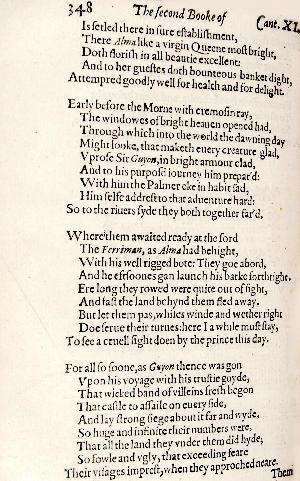 348 The second Booke of Cant. XI.
Is setled there in sure establishment,
There Alma like a virgin Queene most bright,
Doth florish in all beautie excellent:
And to her guestes doth bounteous banket dight,
Attempred goodly well for health and for delight.
Early before the Morne with cremosin ray,
The windowes of bright heauen opened had,
Through which into the world the dawning day
Might looke, that maketh euery creature glad,
Vprose Sir Guyon, in bright armour clad,
And to his purposd iourney him prepar'd:
With him the Palmer eke in habit sad,
Him selfe addrest to that aduenture hard:
So to the riuers syde they both together far'd.
Where them awaited ready at the ford
The Ferriman, as Alma had behight,
With his well rigged bote: They goe abord,
And he eftsoones gan launch his barke forthright.
Ere long they rowed were quite out of sight,
And fast the land behynd them fled away.
But let them pas, whiles winde and wether right
Doe serue their turnes: here I a while must stay,
To see a cruell fight doen by the prince this day.
For all so soone, as Guyon thence was gon
Vpon his voyage with his trustie guyde,
That wicked band of villeins fresh begon
That castle to assaile on euery side,
And lay strong siege about it far and wyde.
So huge and infinite their numbers were,
That all the land they vnder them did hyde;
So fowle and vgly, that exceeding feare
Their visages imprest, when they approched neare.
Them